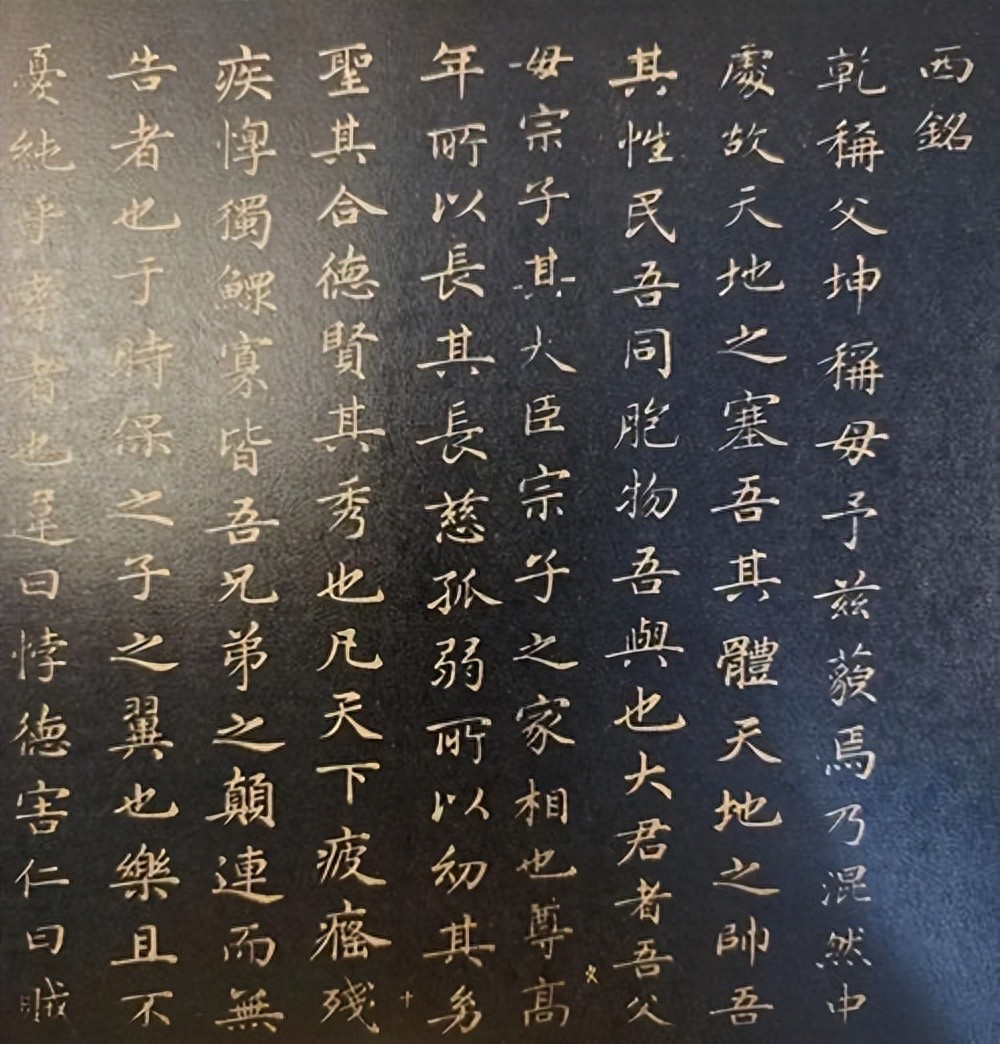 西銘
乾稱父坤稱母予茲藐焉乃混然中
處故天地之塞吾其體天地之帥吾
其性民吾同胞物吾與也大君者吾父
母宗子其大臣宗子之家相也尊高
年所以長其長慈孤弱所以幼其幼
聖其合德賢其秀也凡天下疲癃残
疾惸獨鰥寡皆吾兄弟之顛連而無
告者也于時保之子之翼也樂且不
憂純乎孝者也違曰悖德害仁曰賊